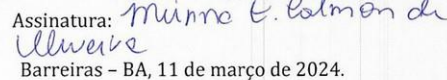 Assinatura: Mirna C. Calmon de
Oliveira
Barreiras – BA, 11 de março de 2024.